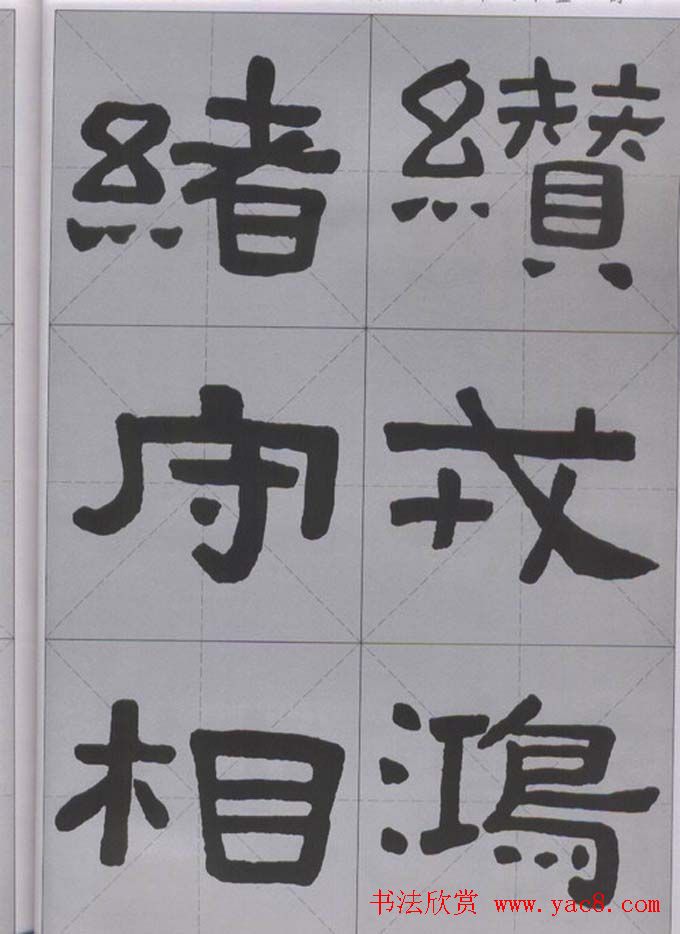 纉戎鴻
緒守相
书法欣赏 www.yac8.com